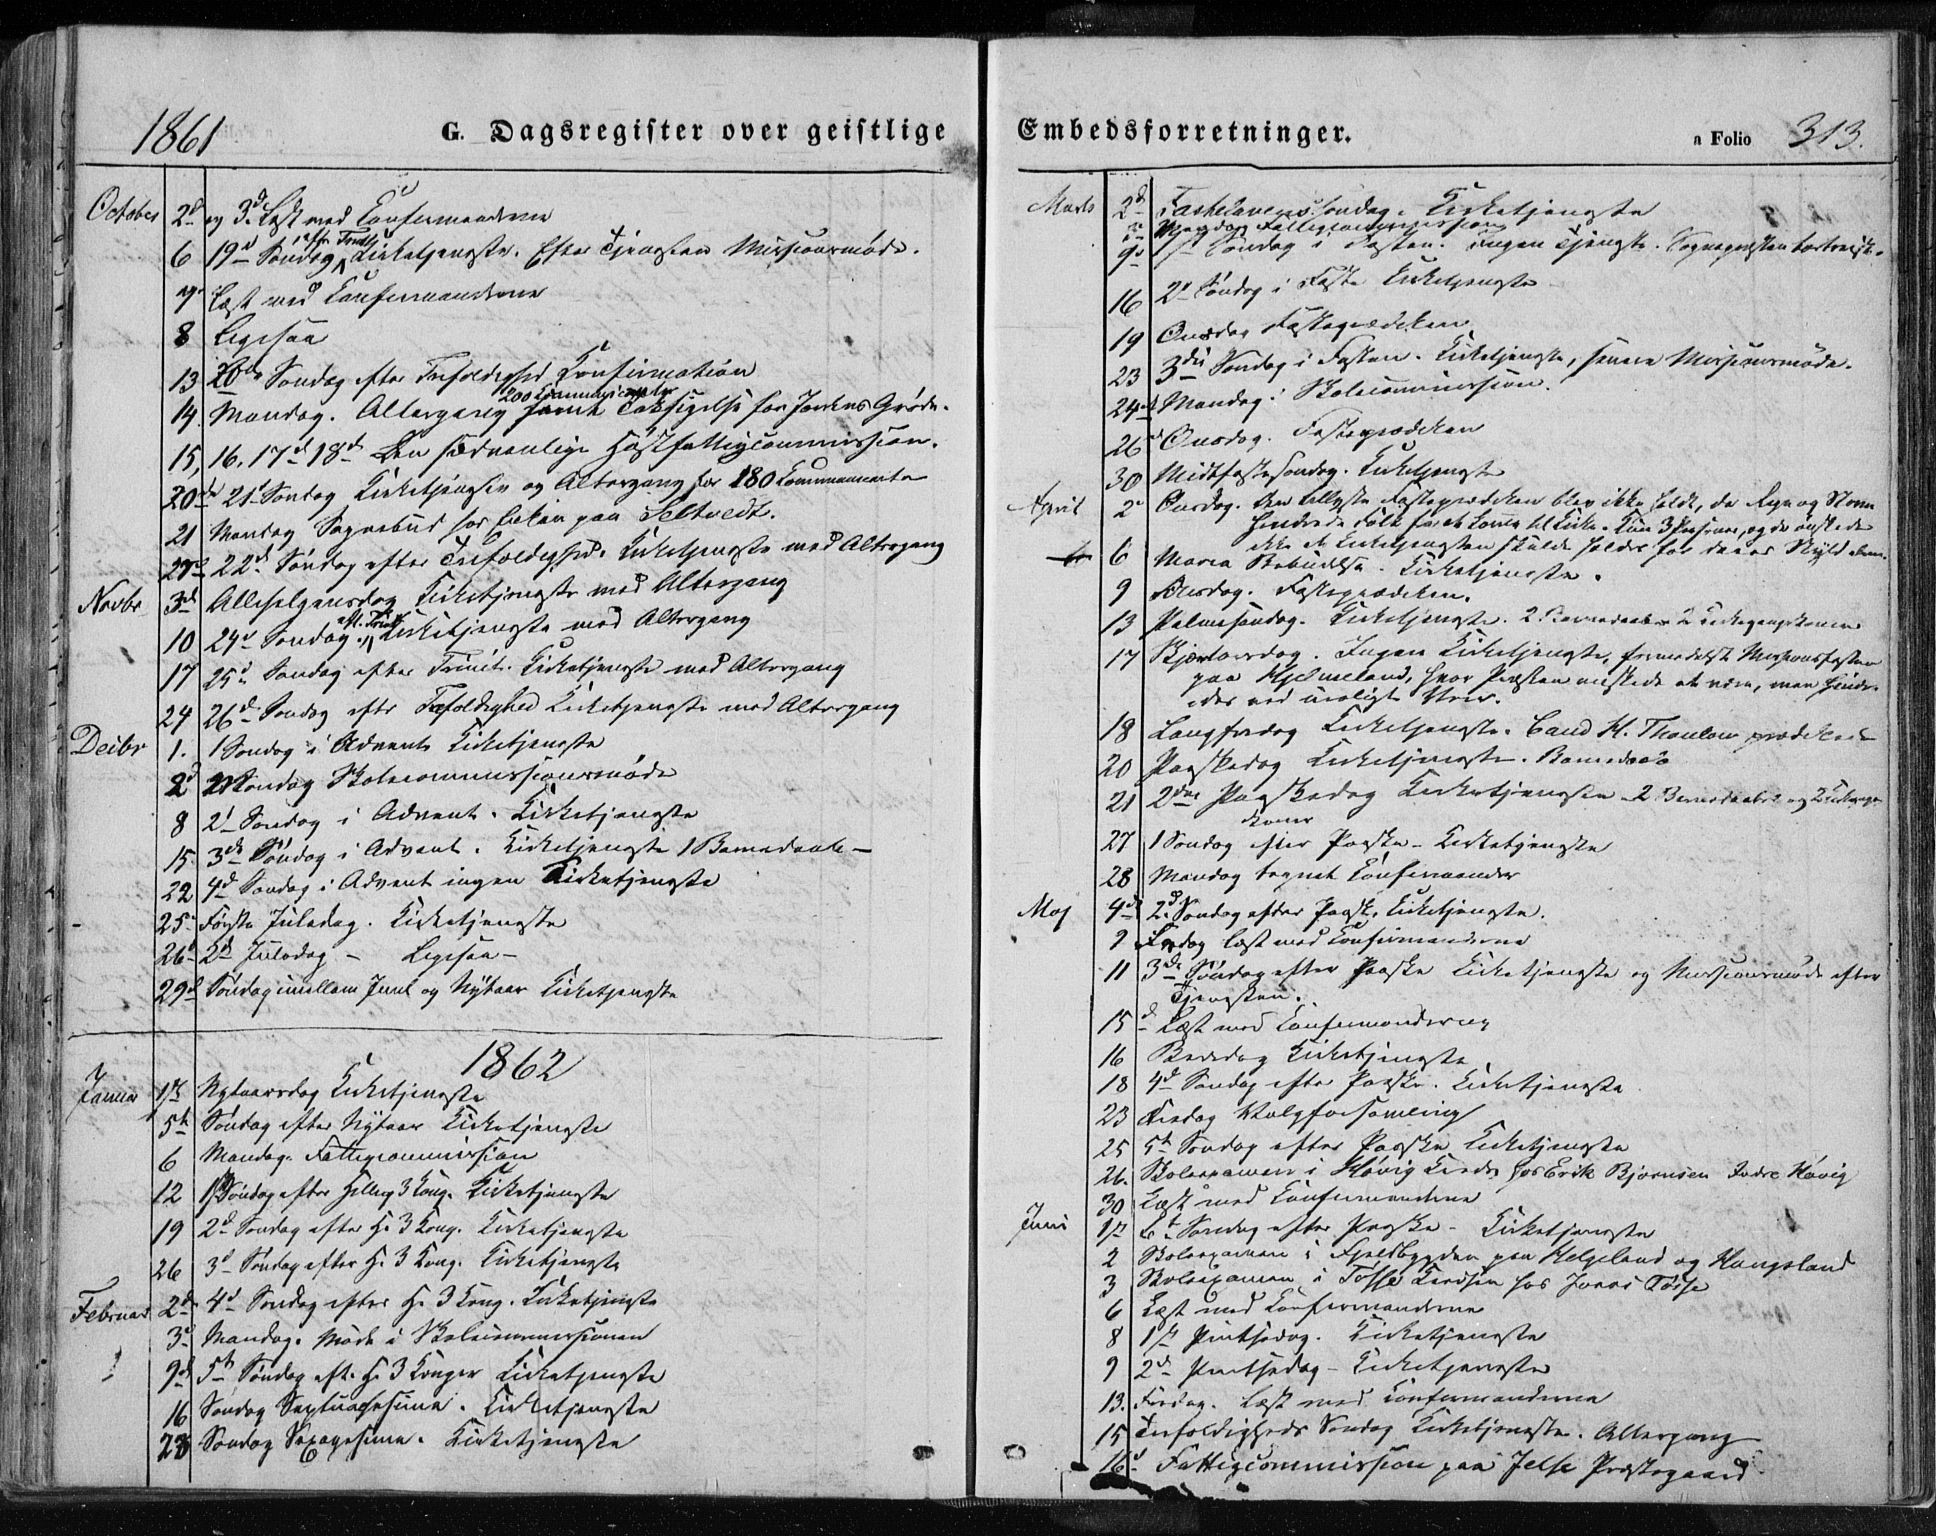 1861
G. Dagsregister over geistlige
October 2d og 3d Læst med Confirmanderne
6 19d Søndag eft. Trinit. Kirketjeneste. Efter Tjenesten Missionsmøde.
7 Læst med Confirmanderne
8 Ligesaa
13 20de Søndag efter Trefoldighed Confirmation
200 Communicanter
14. Mandag. Altergang samt Taksigelse for Jordens Grøde.
15, 16, 17d 18d Den sædvanlige Høstfattigcommission.
20de 21d Søndag Kirketjeneste og Altergang for 180 Communicanter
21 Mandag Sognebud hos paa Seltvedt.
27d 22d Søndag efter Trefoldighed. Kirketjeneste med Altergang
Novbr 3d Allehelgensdag Kirketjeneste med Altergang
10 24d Søndag eft. Trinit. Kirketjeneste med Altergang
17 25d Søndag efter Trinit. Kirketjeneste med Altergang
24 26d Søndag efter Trefoldighed Kirketjeneste med Altergang
Decbr 1. 1 Søndag i Advent Kirketjeneste
2d Mandag Skolecommissionsmøde
8 2d Søndag i Advent. Kirketjeneste
15. 3de Søndag i Advent. Kirketjeneste 1 Barnedaab –
22 4d Søndag i Advent ingen Kirketjeneste
25 Første Juledag. Kirketjeneste
26 2d Juledag – Ligesaa –
29d Søndag imellem Juul og Nytaar Kirketjeneste
1862
Januar 1ste Nytaarsdag Kirketjeneste
5te Søndag efter Nytaar Kirketjeneste
6 Mandag. Fattigcommission
12 1ste Søndag efter Hellig 3 Kong. Kirketjeneste
19 2d Søndag efter H. 3 Kong. Kirketjeneste
26 3d Søndag efter H. 3 Kong. Kirketjeneste
Februar 2d 4d Søndag efter H. 3 Kong. Kirketjeneste
3d Mandag. Møde i Skolecommissionen
9d 5te Søndag eft. H. 3 Konger Kirketjeneste
16 Søndag Septuagesima. Kirketjeneste
23 Søndag Sexagesima. Kirketjeneste
Embedsforretninger.
a Folio 313.
Marts 2d Fastelavens Søndag. Kirketjeneste
3 Mandag Fattigcommission
9d 1ste Søndag i Fasten. Ingen Tjeneste. Sognepresten bortreist.
16 2d Søndag i Faste Kirketjeneste
19 Onsdag Fasteprædiken
23 3die Søndag i Fasten. Kirketjeneste, senere Missionsmøde.
24d Mandag. Skolecommission.
26 Onsdag. Fasteprædiken
30 Midtfastesøndag. Kirketjeneste
April 2d Onsdag. Den tillyste Fasteprædiken blev ikke holdt, da Regn og Storm
hindrede Folk fra at komme til Kirke. Kun 3 Personer, og de ønskede
ikke at Kirketjenesten skulde holdes for deres Skyld
6 Maria Bebudelse. Kirketjeneste.
9 Onsdag. Fasteprædiken.
13 Palmesøndag. Kirketjeneste. 2 Barnedaab 2 Kirkegangskoner
17 Skjertorsdag. Ingen Kirketjeneste, formedelst Missionsfesten
paa Hjelmeland, hvor Presten ønskede at være, men hindre-
des ved uroligt Veir.
18 Langfredag Kirketjeneste. Cand H. Thaulow prædikede
20 Paaskedag Kirketjeneste. Barnedaab
21 2den Paaskedag Kirketjeneste 2 Barnedaab og 2 Kirkegangs-
koner
27 1 Søndag efter Paaske – Kirketjeneste
28 Mandag tegnet Confirmander
Maj 4d 2d Søndag efter Paask. Kirketjeneste.
9 Fredag læst med Confirmanderne
11 3de Søndag efter Paaske Kirketjeneste og Missionsmøde efter
Tjenesten.
15d Læst med Confirmanderne
16 Bededag Kirketjeneste
18 4d Søndag efter Paaske. Kirketjeneste
23 Fredag Valgforsamling
25 5te Søndag efter Paaske Kirketjeneste
26. Skoleexamen i Høvig Kreds hos Erik Bjørnsen Indre Høvig
30 Læst med Confirmanderne
Juni 1ste 6te Søndag efter Paaske – Kirketjeneste
2 Skoleexamen i Fjeldbygden paa Helgeland og Haugsland
3 Skoleexamen i Tøsse Kredsen hos Jonas Tøsse
6 Læst med Confirmanderne
8 1ste Pintsedag. Kirketjeneste
9 2d Pintsedag – Kirketjeneste
13. Fredag. Læst med Confirmanderne
15 Trefoldigheds Søndag Kirketjeneste. Altergang
16d Fattigcommission paa Jelse Præstegaard